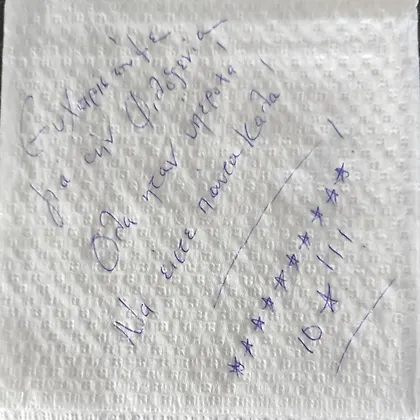 Ευχαριστούμε
για την φιλοξενία
Όλα ήταν υπέροχα!
Να είστε πάντα καλά!
**********!
10 * !!!